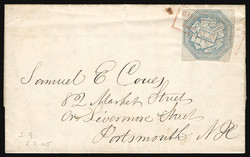 Samuel E Coues
82 Market Street
or Livermore Street
Portsmouth N H